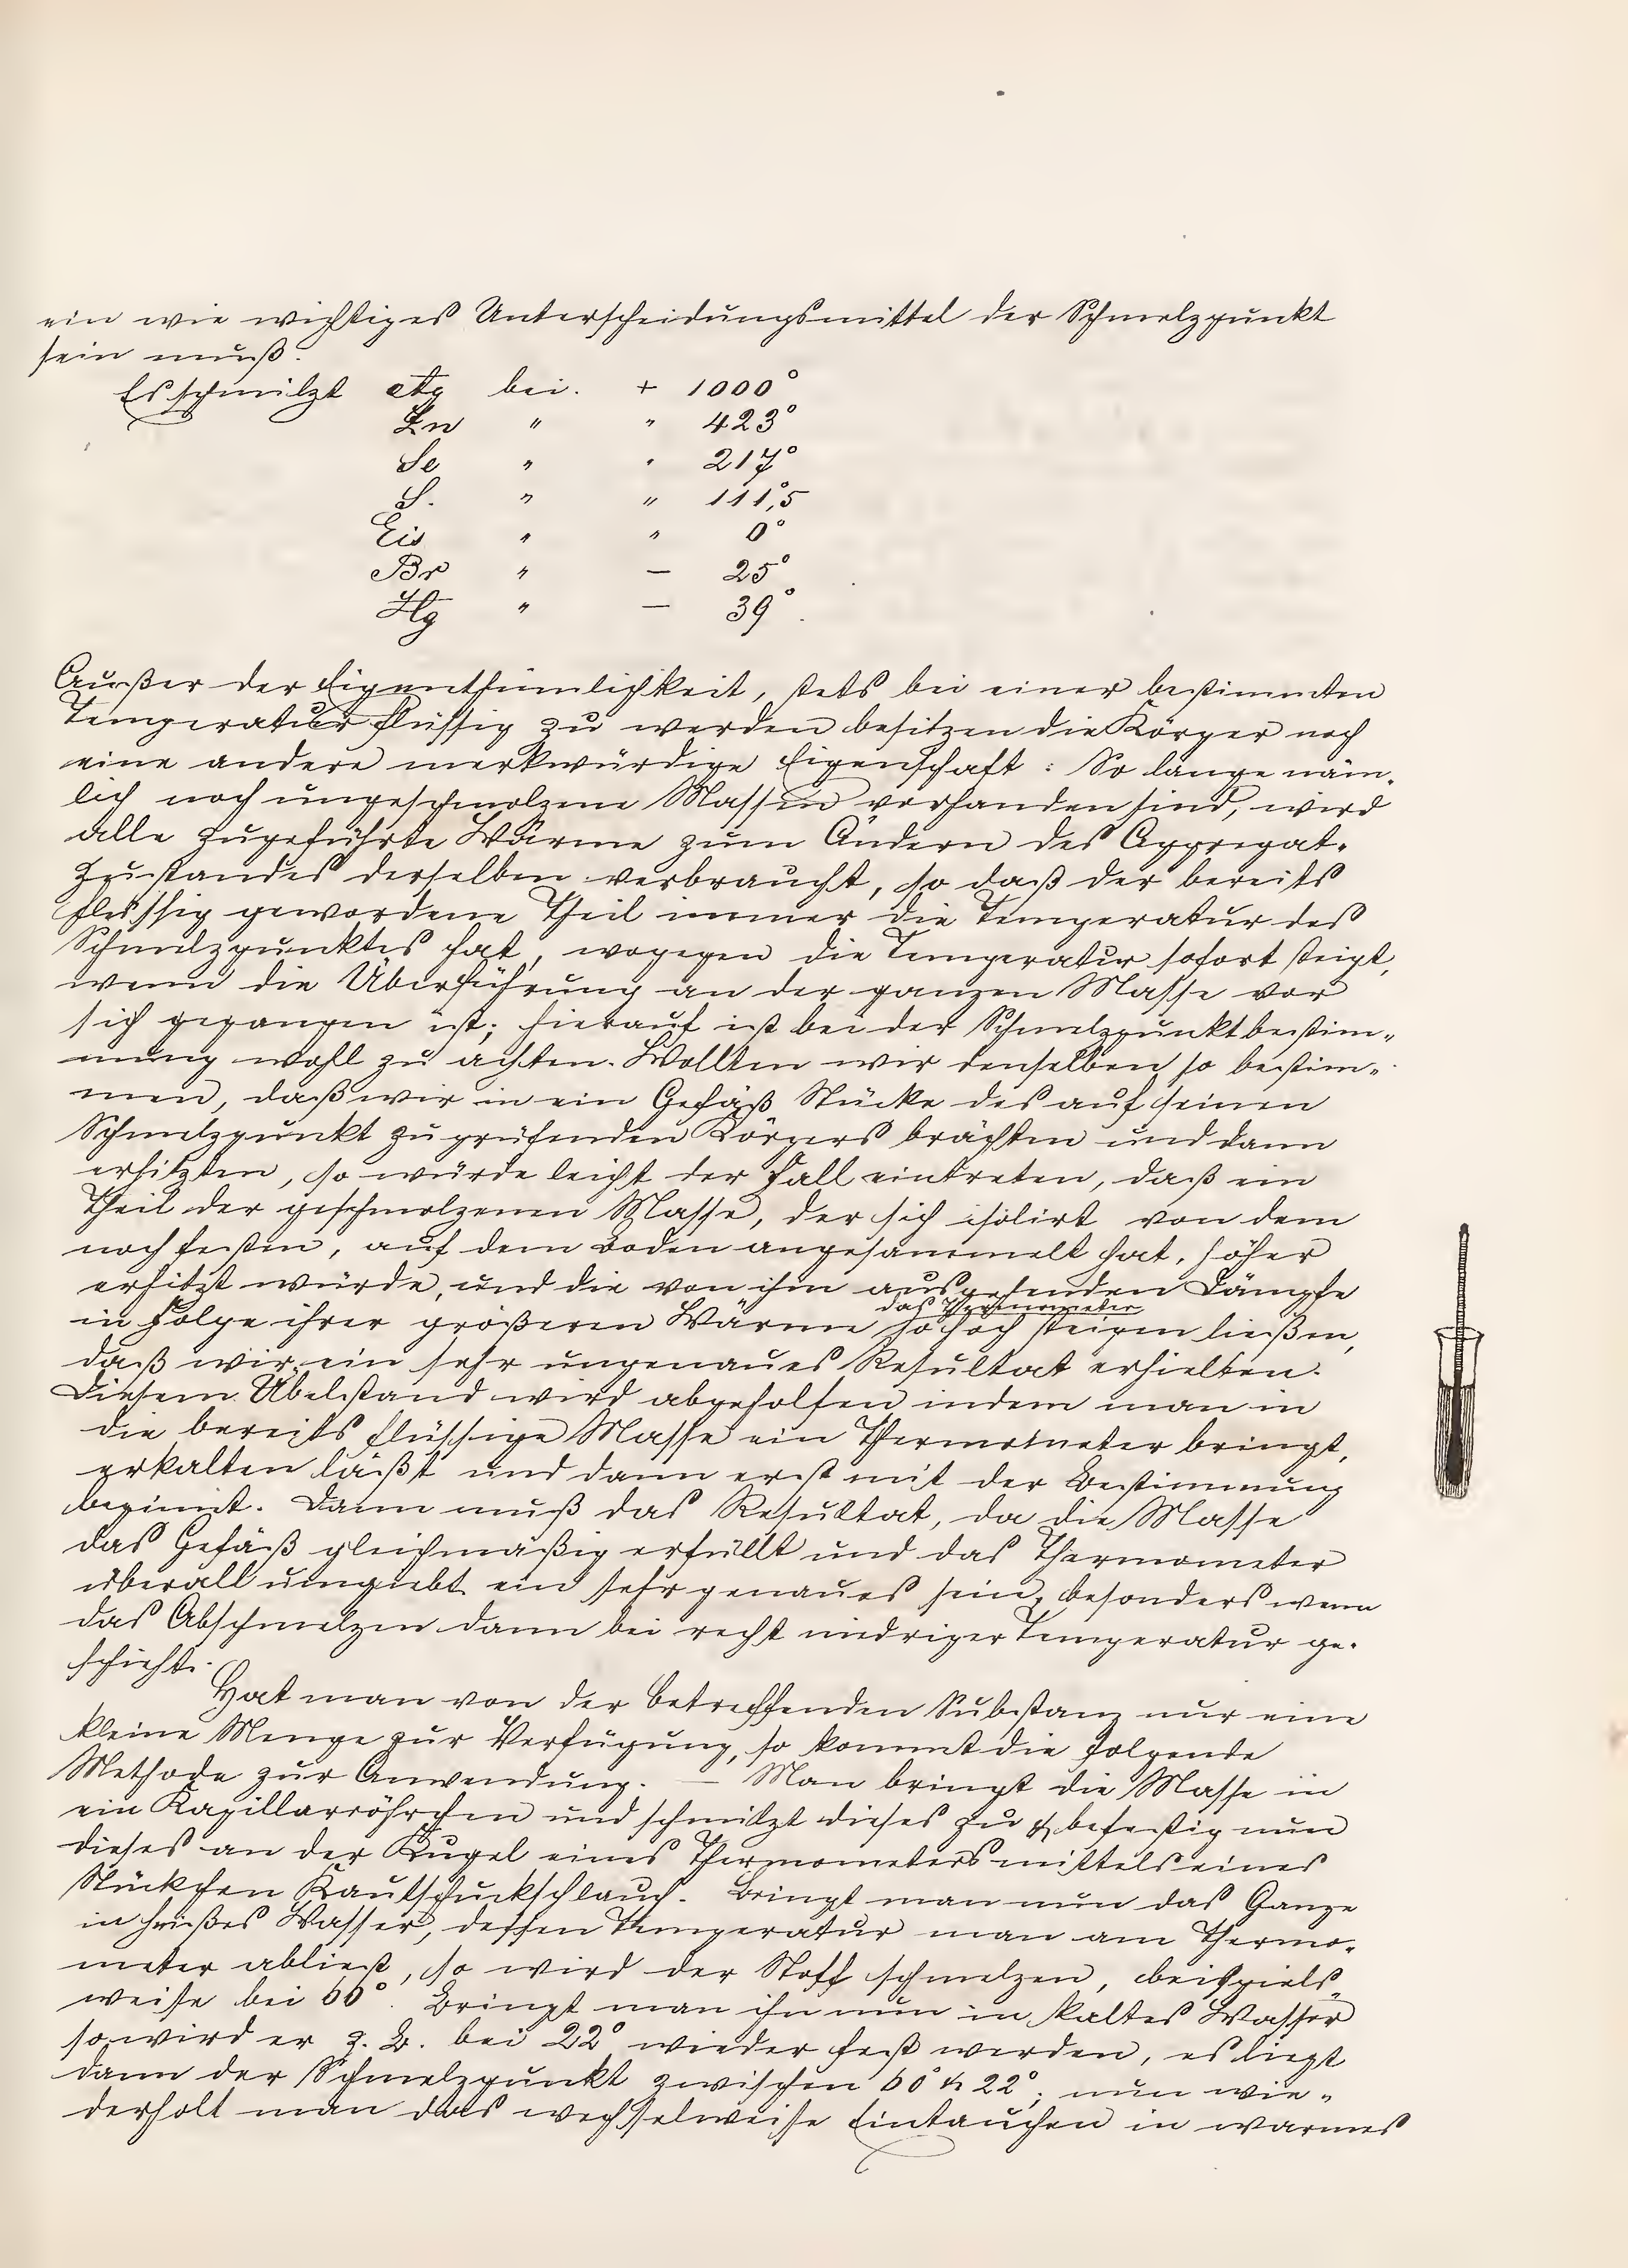 ein wie wichtiges Unterscheidungsmittel der Schmelzpunkt
sein muß.
Es schmilzt Ag bei. + 1000°
Zn " " 423°
Se " " 217°
S. " " 111,°5
Eis " " 0°
Br " — 25°
Hg " — 39°.
Außer der Eigenthümlichkeit, stets bei einer bestimmten
Temperatur flüssig zu werden besitzen die Körper noch
eine andere merkwürdige Eigenschaft: So lange näm-
lich noch ungeschmolzene Massen vorhanden sind, wird
alle zugeführte Wärme zum Ändern des Aggregat-
zustandes derselben verbraucht, so daß der bereits
flüssig gewordene Theil immer die Temperatur des
Schmelzpunktes hat, wogegen die Temperatur sofort steigt,
wenn die Überführung an der ganzen Masse vor
sich gegangen ist; hierauf ist bei der Schmelzpunktbestim-
mung wohl zu achten. Wollten wir denselben so bestim-
men, daß wir in ein Gefäß Stücke des auf seinen
Schmelzpunkt zu prüfenden Körpers brächten und dann
erhitzten, so würde leicht der Fall eintreten, daß ein
Theil der geschmolzenen Masse, der sich isolirt von dem
noch festen, auf dem Boden angesammelt hat, höher
erhitzt würde, und die von ihm ausgehenden Dämpfe
das Thermometer
in Folge ihrer größeren Wärme so hoch steigen ließen,
daß wir ein sehr ungenaues Resultat erhielten.
Diesem Übelstand wird abgeholfen indem man in
die bereits flüssige Masse ein Thermometer bringt,
erkalten läßt und dann erst mit der Bestimmung
beginnt. Dann muß das Resultat, da die Masse
das Gefäß gleichmäßig erfüllt und das Thermometer
überall umgiebt ein sehr genaues sein, besonders wenn
das Abschmelzen dann bei recht niedriger Temperatur ge-
schieht.
Hat man von der betreffenden Substanz nur eine
kleine Menge zur Verfügung, so kommt die folgende
Methode zur Anwendung. — Man bringt die Masse in
ein Kapillarröhrchen und schmilzt dieses zu & befestig nun
dieses an der Kugel eines Thermometers mittels eines
Stückchen Kautschuckschlauch. Bringt man nun das Ganze
in heißes Wasser, dessen Temperatur man am Thermo-
meter abließt, so wird der Stoff schmelzen, beispiels-
weise bei 60°. Bringt man ihn nun in kaltes Wasser
so wird er z. B. bei 22° wieder fest werden, es liegt
dann der Schmelzpunkt zwischen 60° & 22°; nun wie-
derholt man das wechselweise Eintauchen in warmes